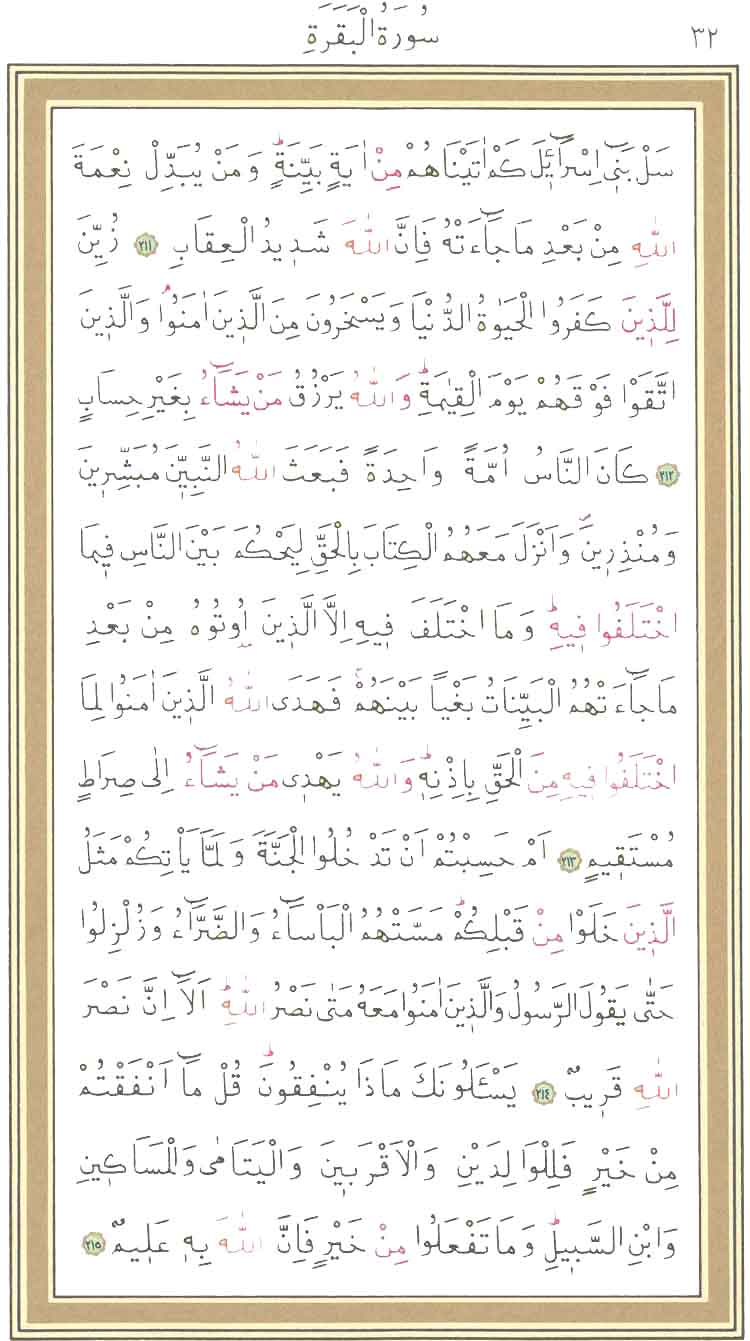 ٣٢
سُورَةُ الْبَقَرَةِ
سَلْ بَنٖٓي اِسْرَٓائٖلَ كَمْ اٰتَيْنَاهُمْ مِنْ اٰيَةٍ بَيِّنَةٍؕ وَمَنْ يُبَدِّلْ نِعْمَةَ
اللّٰهِ مِنْ بَعْدِ مَا جَٓاءَتْهُ فَاِنَّ اللّٰهَ شَدٖيدُ الْعِقَابِ ﴿٢١١﴾ زُيِّنَ
لِلَّذٖينَ كَفَرُوا الْحَيٰوةُ الدُّنْيَا وَيَسْخَرُونَ مِنَ الَّذٖينَ اٰمَنُواۘ وَالَّذٖينَ
اتَّقَوْا فَوْقَهُمْ يَوْمَ الْقِيٰمَةِؕ وَاللّٰهُ يَرْزُقُ مَنْ يَشَٓاءُ بِغَيْرِ حِسَابٍ
﴿٢١٢﴾ كَانَ النَّاسُ اُمَّةً وَاحِدَةً فَبَعَثَ اللّٰهُ النَّبِيّٖنَ مُبَشِّرٖينَ
وَمُنْذِرٖينَࣕ وَاَنْزَلَ مَعَهُمُ الْكِتَابَ بِالْحَقِّ لِيَحْكُمَ بَيْنَ النَّاسِ فٖيمَا
اخْتَلَفُوا فٖيهِؕ وَمَا اخْتَلَفَ فٖيهِ اِلَّا الَّذٖينَ اُوتُوهُ مِنْ بَعْدِ
مَا جَٓاءَتْهُمُ الْبَيِّنَاتُ بَغْياً بَيْنَهُمْۚ فَهَدَى اللّٰهُ الَّذٖينَ اٰمَنُوا لِمَا
اخْتَلَفُوا فٖيهِ مِنَ الْحَقِّ بِاِذْنِهٖؕ وَاللّٰهُ يَهْدٖي مَنْ يَشَٓاءُ اِلٰى صِرَاطٍ
مُسْتَقٖيمٍ ﴿٢١٣﴾ اَمْ حَسِبْتُمْ اَنْ تَدْخُلُوا الْجَنَّةَ وَلَمَّا يَأْتِكُمْ مَثَلُ
الَّذٖينَ خَلَوْا مِنْ قَبْلِكُمْؕ مَسَّتْهُمُ الْبَأْسَٓاءُ وَالضَّرَّٓاءُ وَزُلْزِلُوا
حَتّٰى يَقُولَ الرَّسُولُ وَالَّذٖينَ اٰمَنُوا مَعَهُ مَتٰى نَصْرُ اللّٰهِؕ اَلَٓا اِنَّ نَصْرَ
اللّٰهِ قَرٖيبٌ ﴿٢١٤﴾ يَسْـَٔلُونَكَ مَاذَا يُنْفِقُونَؕ قُلْ مَٓا اَنْفَقْتُمْ
مِنْ خَيْرٍ فَلِلْوَالِدَيْنِ وَالْاَقْرَبٖينَ وَالْيَتَامٰى وَالْمَسَاكٖينِ
وَابْنِ السَّبٖيلِؕ وَمَا تَفْعَلُوا مِنْ خَيْرٍ فَاِنَّ اللّٰهَ بِهٖ عَلٖيمٌ ﴿٢١٥﴾